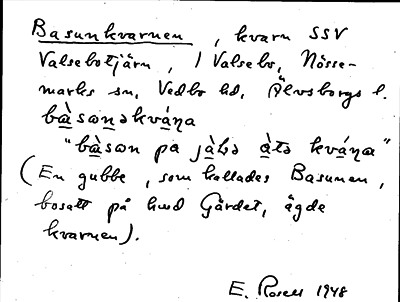 Basunkvarnen, kvarn SSV
Valsebotjärn, i Valsebo, Nösse-
marks sn, Vedbo hd, Älvsborgs l.
bàsonəkváṇa
"bàson på jàbə àtə kváṇa"
(En gubbe, som kallades Basunen,
bosatt på hmd Gärdet, ägde
kvarnen).
E. Rosell 1948